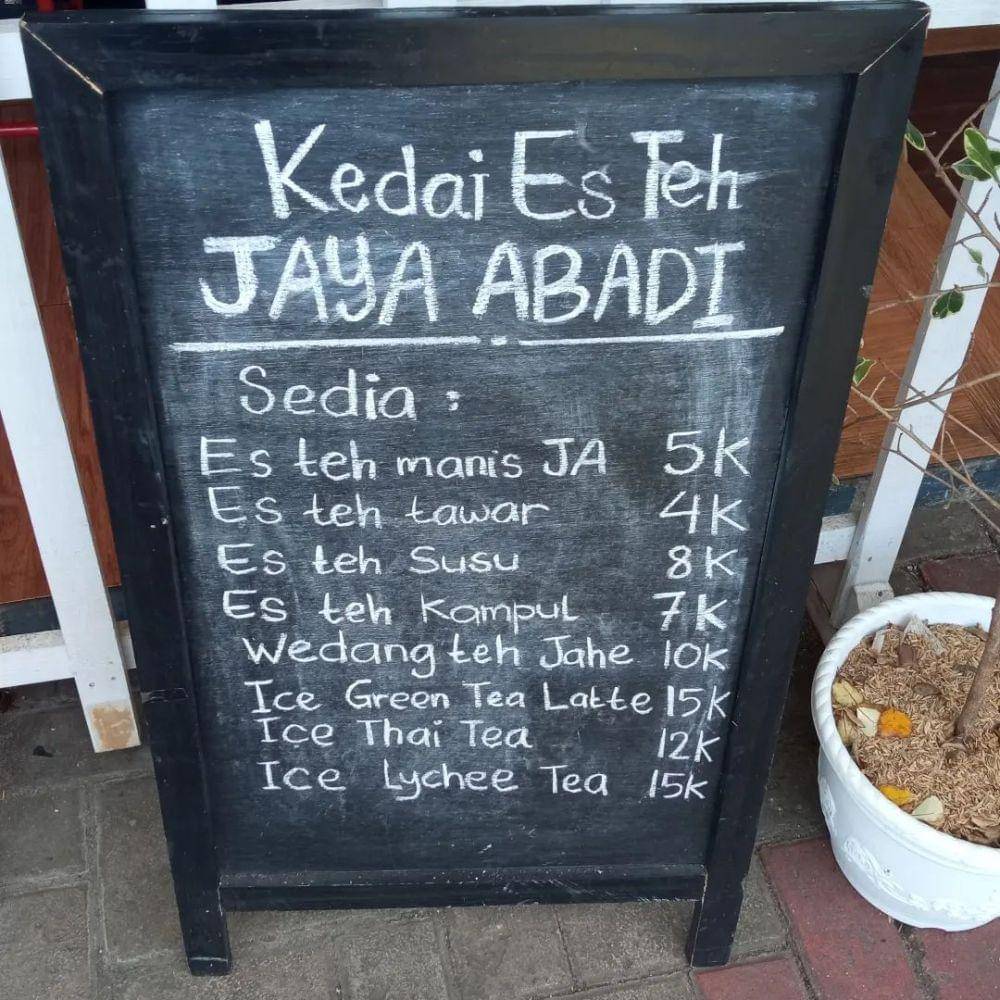 Kedai Es Teh
JAYA ABADI
Sedia :
Es teh manis JA 5K
Es teh tawar 4K
Es teh Susu 8K
Es teh Kampul 7K
Wedang teh Jahe 10K
Ice Green Tea Latte 15K
Ice Thai Tea 12K
Ice Lychee Tea 15K